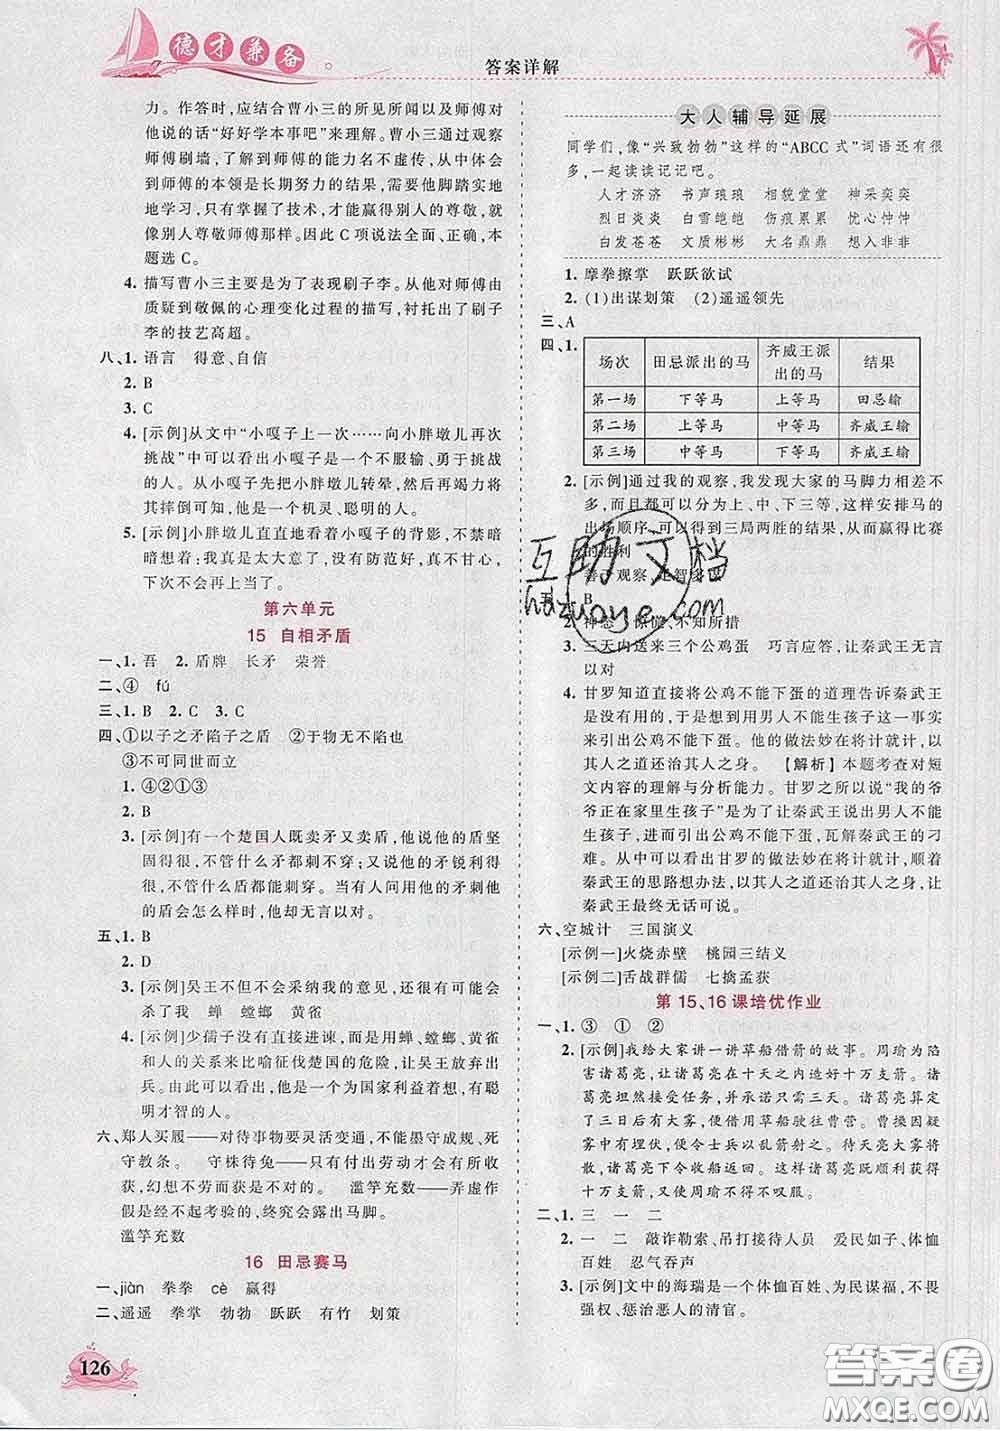 德才兼备
答案详解
力。作答时,应结合曹小三的所见所闻以及师傅对
他说的话“好好学本事吧”来理解。曹小三通过观察
师傅刷墙,了解到师傅的能力名不虚传,从中体会到
师傅的本领是长期努力的结果,需要他脚踏实地
地学习,只有掌握了技术,才能赢得别人的尊敬,就
像别人尊敬师傅一样。因此C项说法全面、正确,本
题选C。
4. 描写曹小三主要是为了表现刷子李。他对师傅由
质疑到敬佩的心理变化过程的描写,衬托出了刷子
李的技艺高超。
八、1. 语言 得意、自信
2. B
3. C
4. [示例]从文中“小嘎子上一次……向小胖墩儿再次
挑战”中可以看出小嘎子是一个不服输、勇于挑战
的人。从小嘎子先把小胖墩儿转晕,然后再使绊将
其摔倒可知,他是一个机灵、聪明的人。
5. [示例]小胖墩儿直直地看着小嘎子的背影,不禁暗
暗想着:我真是太大意了,没有防范好,真不甘心,
下次不会再上当了。
第六单元
15 自相矛盾
一、1. 吾 2. 盾牌 长矛 荣誉
二、④ fú
三、1. B 2. C 3. C
四、①以子之矛陷子之盾 ②于物无不陷也
③不可同世而立
1. ④②①③
2. B
3. [示例]有一个楚国人既卖矛又卖盾,他说他的盾坚
固得很,不管什么矛都刺不穿;又说他的矛锐利得
很,不管什么盾都能刺穿。当有人问用他的矛刺他
的盾会怎么样时,他却无言以对。
五、1. B
2. D
3. [示例]吴王不但不会采纳我的意见,还极有可能会
杀了我 蝉 螳螂 黄雀
4. [示例]少孺子没有直接进谏,而是用蝉、螳螂、黄雀
和人的关系来比喻征伐楚国的危险,让吴王放弃出
兵。由此可以看出,他是一个为国家利益着想、有聪
明才智的人。
六、郑人买履——对待事物要灵活变通,不能墨守成规、死
守教条。 守株待兔——只有付出劳动才会有所收
获,幻想不劳而获是不行的。 滥竽充数——弄虚作
假是经不起考验的,终究会露出马脚。
滥竽充数
16 田忌赛马
一、jiàn 拳拳 cè 赢得
二、遥遥 拳掌 勃勃 跃跃 有竹 划策
126
大人辅导延展
同学们,像“兴致勃勃”这样的“ABCC式”词语还有很
多,一起读读记记吧。
人才济济 书声琅琅 相貌堂堂 神采奕奕
烈日炎炎 白雪皑皑 伤痕累累 忧心忡忡
白发苍苍 文质彬彬 大名鼎鼎 想入非非
1. 摩拳擦掌 跃跃欲试
2. (1)出谋划策 (2)遥遥领先
三、A
四、1.
场次 田忌派出的马 齐威王派出的马 结果
第一场 下等马 上等马 田忌输
第二场 上等马 中等马 齐威王输
第三场 中等马 下等马 齐威王输
2. [示例]通过我的观察,我发现大家的马脚力相差不
多,而且都可以分为上、中、下三等,这样安排马的
出场顺序,可以得到三局两胜的结果,从而赢得比赛
的胜利
善于观察,足智多谋
五、1. B
2. 神态 惊慌、不知所措
3. 三天内送来三个公鸡蛋 巧言应答,让秦武王无言
以对
4. 甘罗知道直接将公鸡不能下蛋的道理告诉秦武王
是没有用的,于是想到用男人不能生孩子这一事实
来引出公鸡不能下蛋。他的做法妙在将计就计,以
其人之道还治其人之身。 【解析】本题考查对短
文内容的理解与分析能力。甘罗之所以说“我的爷
爷正在家里生孩子”是为了让秦武王说出男人不能
生孩子,进而引出公鸡不能下蛋,瓦解秦武王的刁
难。从中可以看出甘罗的做法妙在将计就计,顺着
秦武王的思路想办法,以其人之道还治其人之身,让
秦武王最终无话可说。
六、空城计 三国演义
[示例一]火烧赤壁 桃园三结义
[示例二]舌战群儒 七擒孟获
第15、16课培优作业
一、1. ③ ① ②
2. [示例]我给大家讲一讲草船借箭的故事。周瑜为陷
害诸葛亮,让诸葛亮在十天之内造好十万支箭。诸
葛亮坦然接受任务,并表示只需三天。诸葛亮算定
了三日后有大雾,便借用草船驶往曹营。曹操因疑
雾中有埋伏,便令士兵以乱箭射之。待天亮大雾将
散,诸葛亮令收船返回。这样诸葛亮不费力气得
十万支箭,使周瑜不得不叹服。
二、1. 三 一 二
2. 一 二 敲诈勒索、吊打接待人员 爱民如子、体恤
百姓 忍气吞声
3. [示例]文中的海瑞是一个体恤百姓、为民谋福、不畏
强权、惩治恶人的清官。
互助文档
hdzuoye.com
答案圈
MXQE.COM